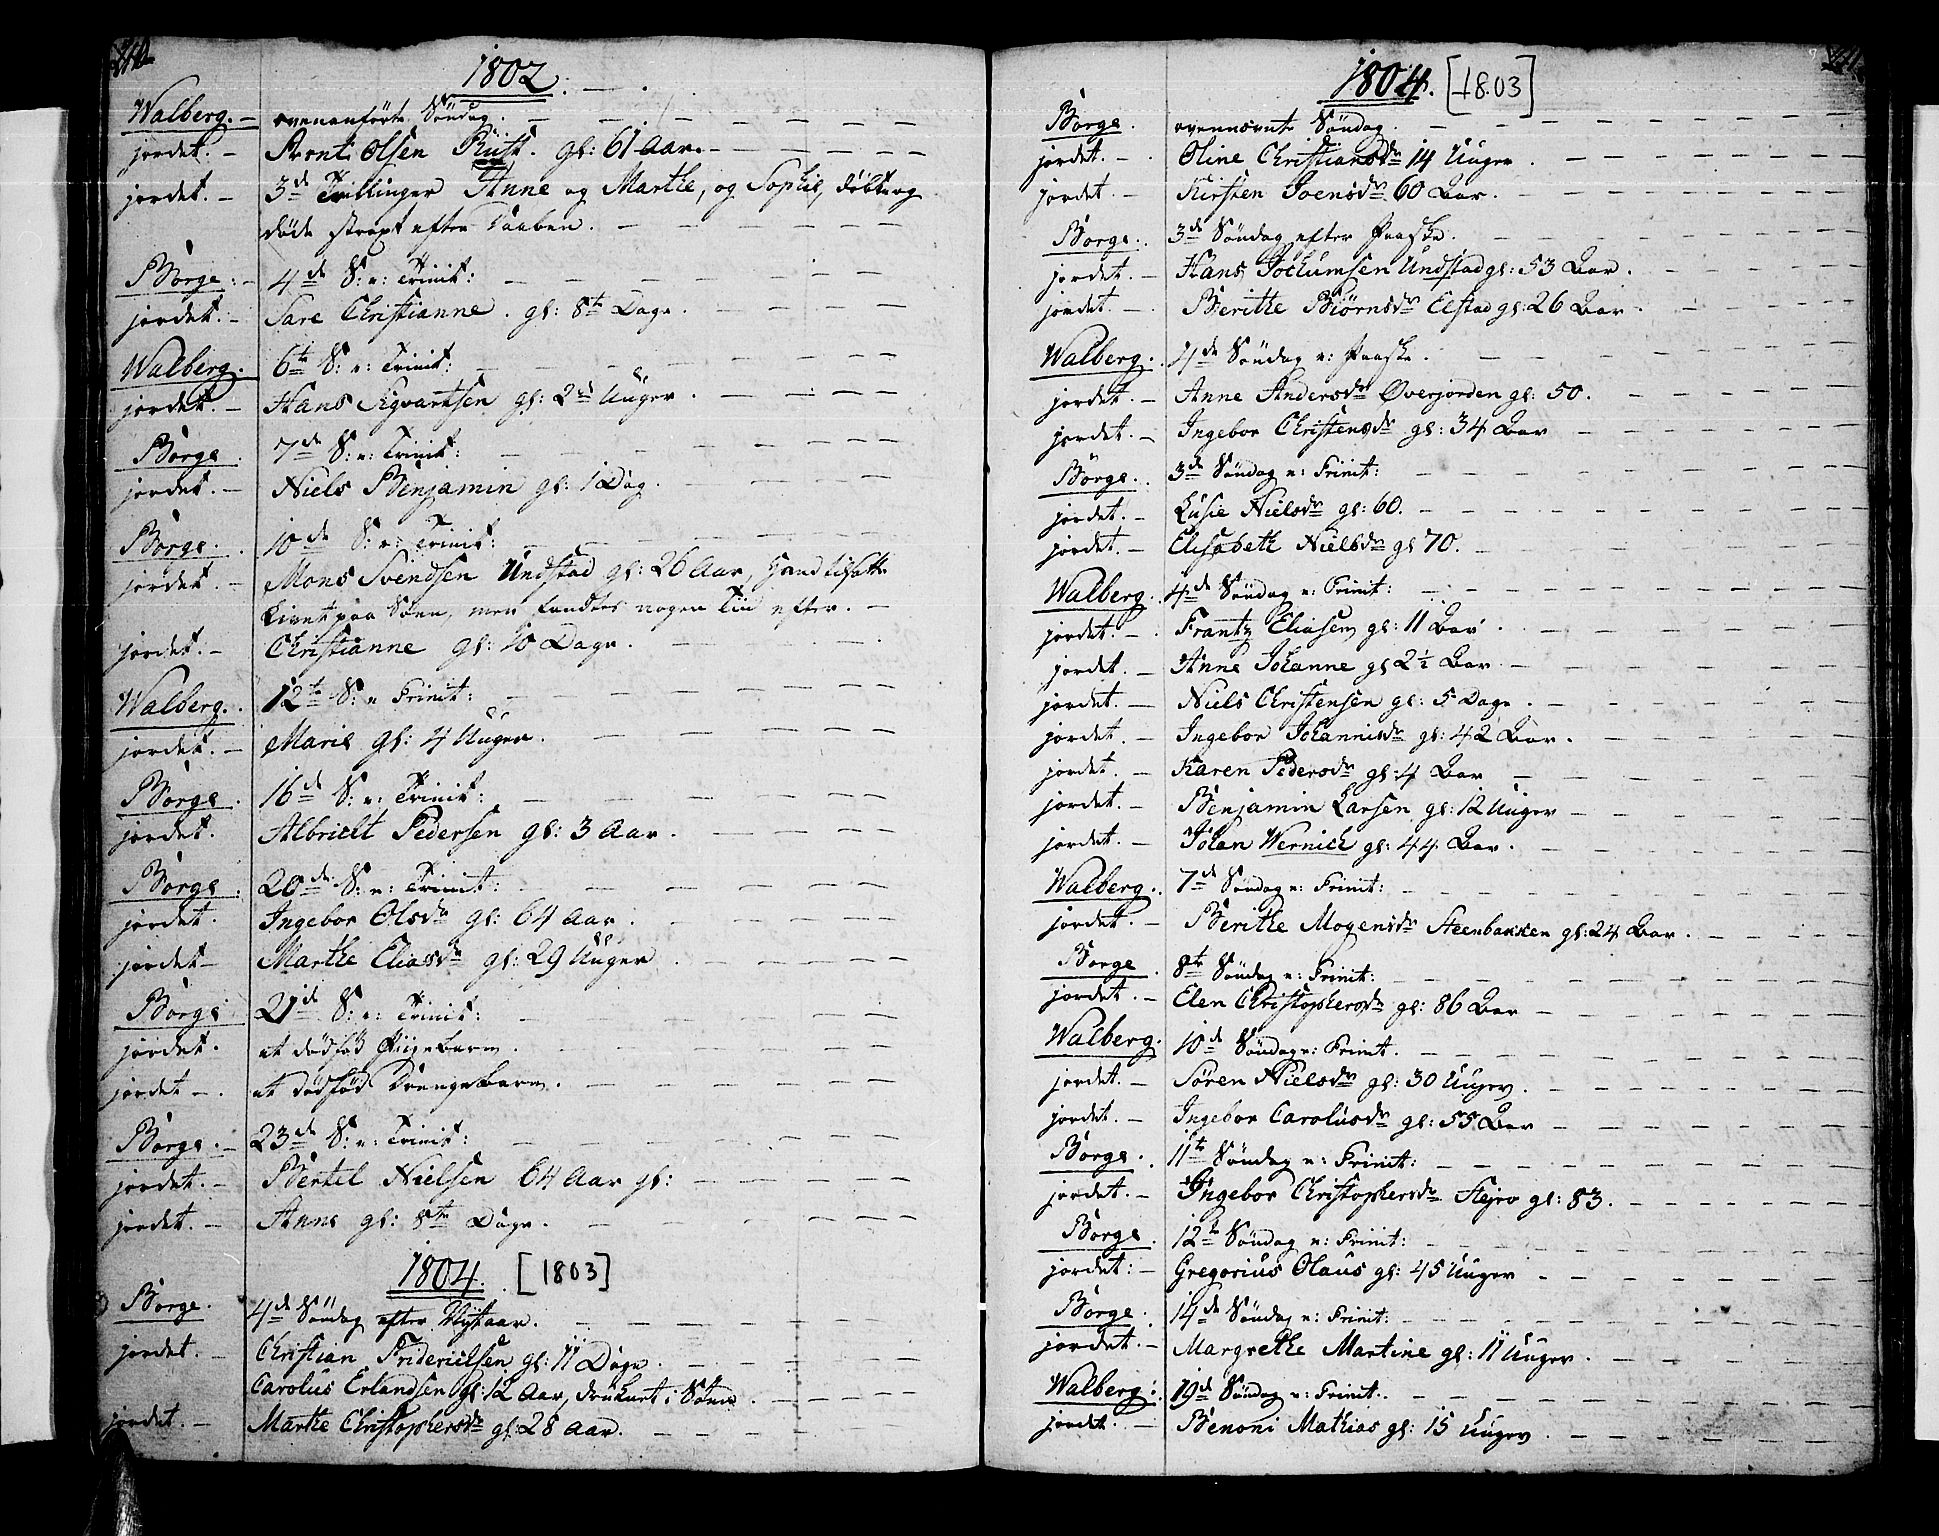 1802.
Walberg. ovenanførte Søndag.
jordet. Bront Olsen Rüst. gl: 61 Aar.
jordet. 3de Trillinger Anne og Marthe, og Sophie,
døde strax efter Daaben.
Borge. 4de S: e: Trinit:
jordet. Sare Christianne. gl: 8te Dage.
Walberg. 6te S: e: Trinit:
jordet. Hans Sigvartsen gl: 2de Uger.
Borge. 7de S: e: Trinit:
jordet. Niels Benjamin gl: 1 Dag.
Borge. 10de S: e: Trinit:
jordet. Mons Svendsen Undstad gl: 26 Aar, hand tilsatte
Livet paa Søen, men fandtes nogen Tiid efter.
jordet. Christianne gl: 10 Dage.
Walberg. 12te S: e Trinit:
jordet. Marie gl: 4 Uuger.
Borge. 16de S: e: Trinit:
jordet. Albricht Pedersen gl: 3 Aar.
Borge. 20de S: e: Trinit:
jordet. Ingebor Olsdr gl: 64 Aar.
jordet Marthe Eliasdr gl: 29 Uuger
Borge 21de S: e: Trinit:
jordet. et dødfød Piigebarn.
jordet et dødfød Drengebarn.
Borge. 23de S: e: Trinit:
jordet. Bertel Nielsen 64 Aar gl:
jordet. Anne gl: 8te Dage.
1804. [1803]
Borge. 4de Søndag efter Nytaar.
jordet. Christian Friderichsen gl: 11 Dage.
Carolus Erlandsen gl: 12 Aar, druknet i Søen
jordet. Marthe Christophersdr gl: 28 Aar.
1804. [1803]
Borge. ovennævnte Søndag.
jordet. Oline Christiansdr 14 Uuger.
jordet. Kirsten Svensdr 60 Aar.
Borge. 3de Søndag efter Paaske.
jordet. Hans Jochumsen Undstad gl: 53 Aar.
jordet. Berithe Biørnsdr Elstad gl: 26 Aar.
Walberg. 4de Søndag e: Paaske.
jordet. Anne Andersdr Øverjorden gl: 50.
jordet. Ingebor Christensdr gl: 34 Aar
Borge. 3de Søndag e: Trinit:
jordet. Lusie Nielsdr gl: 60.
jordet. Elisabeth Nielsdr gl 70.
Walberg. 4de Søndag e: Trinit:
jordet. Frantz Eliasen gl: 11 Aar.
jordet. Anne Johanne gl 2½ Aar.
jordet. Niels Christensen gl: 5 Dage.
jordet. Ingebor Johannisdr gl: 42 Aar.
jordet. Karen Pedersdr gl: 4 Aar
jordet. Benjamin Larsen gl: 12 Uuger
jordet. Johan Wernich gl: 44 Aar.
Walberg. 7de Søndag e: Trinit:
jordet. Berithe Mogensdr Steenbakken gl: 24 Aar.
Borge. 8te Søndag e: Trinit:
jordet. Elen Christophersdr gl: 86 Aar
Walberg. 10de Søndag e: Trinit.
jordet. Søren Nielsdr gl: 30 Uuger.
jordet. Ingebor Carolusdr gl: 55 Aar
Borge. 11te Søndag e: Trinit:
jordet. Ingebor Christophersdr gl: 83.
Borge. 12te Søndag e: Trinit:
jordet: Gregorius Olaus gl: 45 Uuger
Borge. 14de Søndag e: Trinit:
jordet. Margrethe Martine gl: 11 Uuger.
Walberg: 19de Søndag e: Trinit.
jordet. Benoni Mathias gl: 15 Uuger.